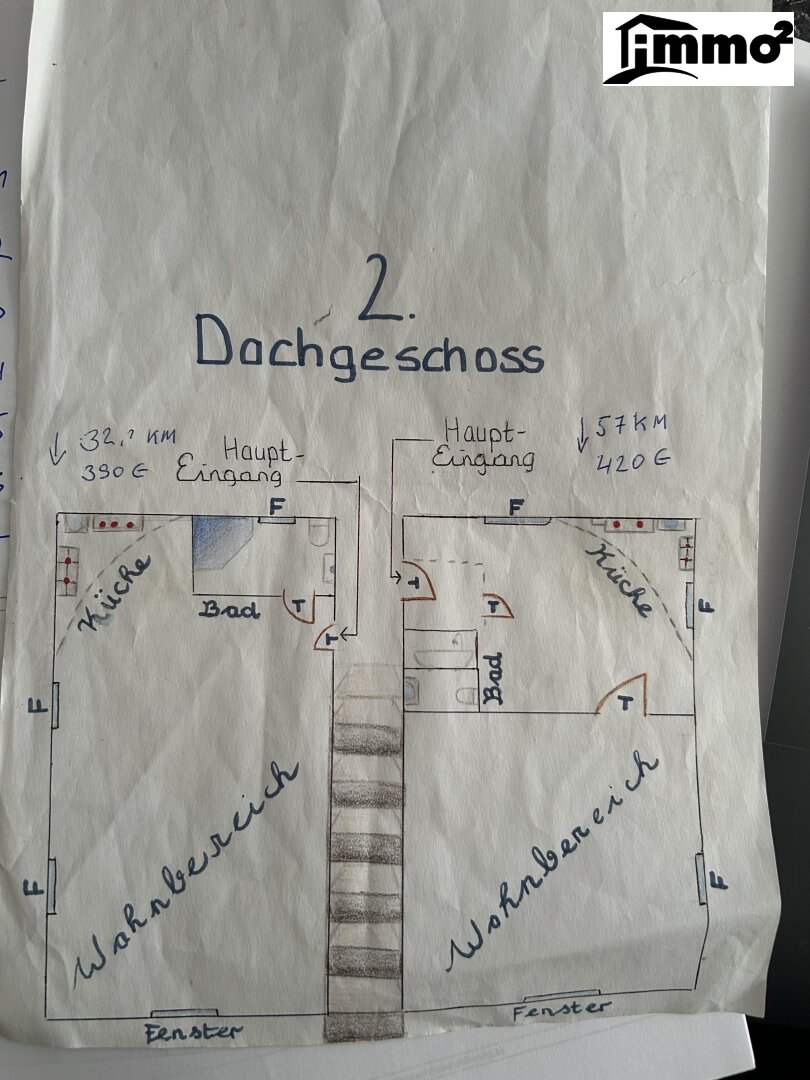 immo²
2.
Dachgeschoss
32,? KM
390 €
Haupt-
Eingang
Haupt-
Eingang
57 KM
420 €
F
F
Küche
Bad
T
T
T
T
Küche
F
Bad
T
F
F
F
Wohnbereich
Wohnbereich
Fenster
Fenster